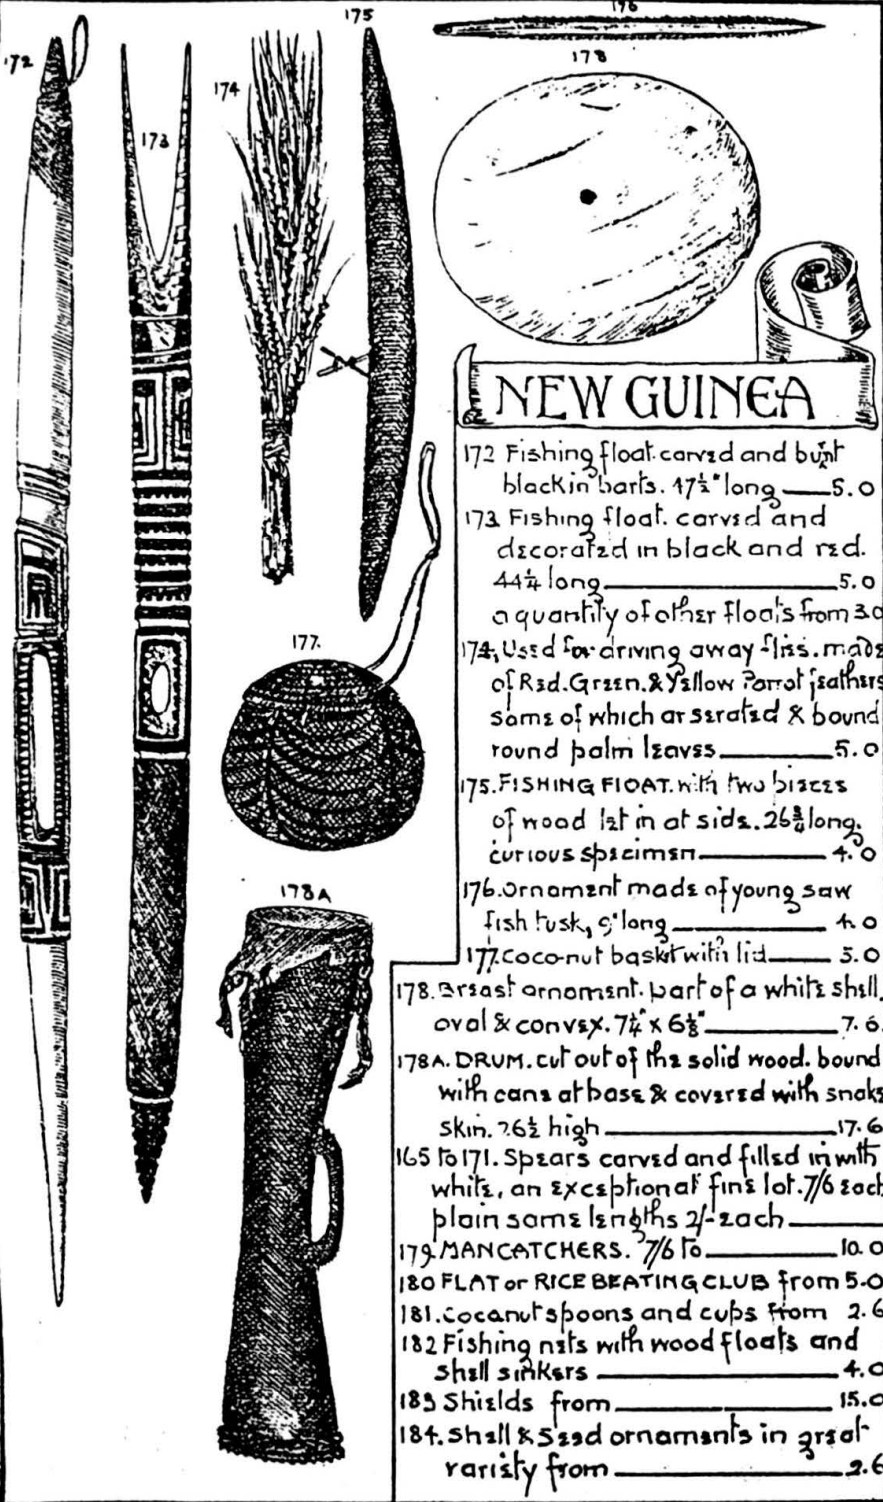 172
173
174
175
176
178
177.
178A
NEW GUINEA
172 Fishing float. carved and burnt
black in parts. 47½" long — 5.0
173 Fishing float. carved and
decorated in black and red.
44¼ long — 5.0
a quantity of other floats from 3.0
174, Used for driving away flies. made
of Red. Green. & Yellow Parrot feathers
some of which ar serated & bound
round palm leaves — 5.0
175. FISHING FLOAT. with two pieces
of wood let in at side. 26¾ long.
curious specimen — 4.0
176. Ornament made of young saw
fish tusk, 9" long — 4.0
177. coco-nut basket with lid — 5.0
178. Breast ornament. part of a white shell,
oval & convex. 7¼" x 6⅛" — 7.6
178A. DRUM. cut out of the solid wood. bound
with cane at base & covered with snake
skin. 26½ high — 17.6
165 to 171. Spears carved and filled in with
white, an exceptional fine lot. 7/6 each
plain same lengths 2/- each —
179. MANCATCHERS. 7/6 to — 10.0
180 FLAT or RICE BEATING CLUB from 5.0
181. Cocanut spoons and cups from 2.6
182 Fishing nets with wood floats and
shell sinkers — 4.0
183 Shields from — 15.0
184. Shell & Seed ornaments in great
variety from — 2.6